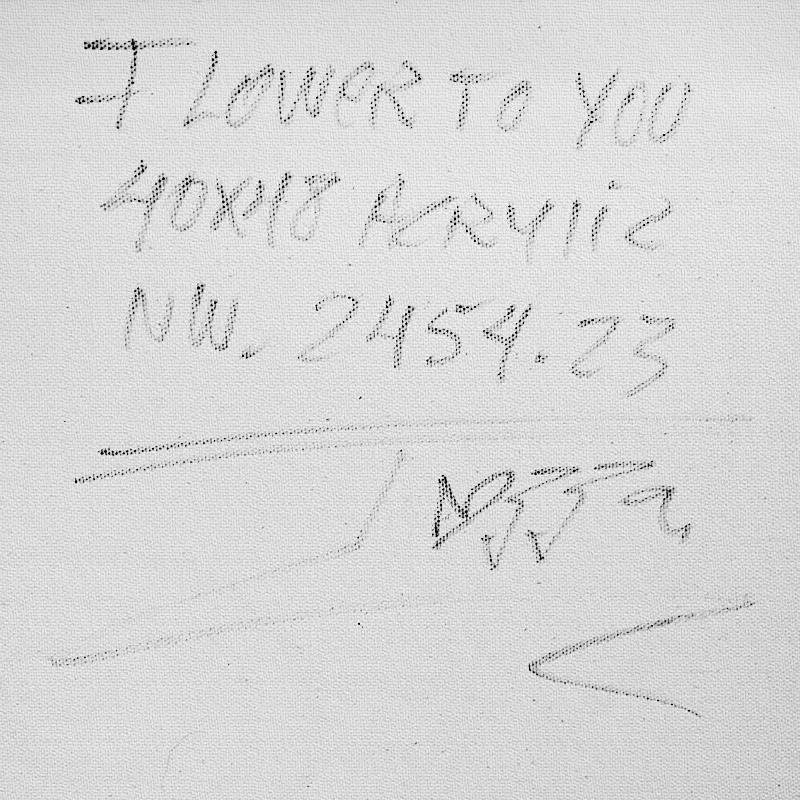 FLOWER TO YOU
40X48 ACRYLIC
NW. 2454.23